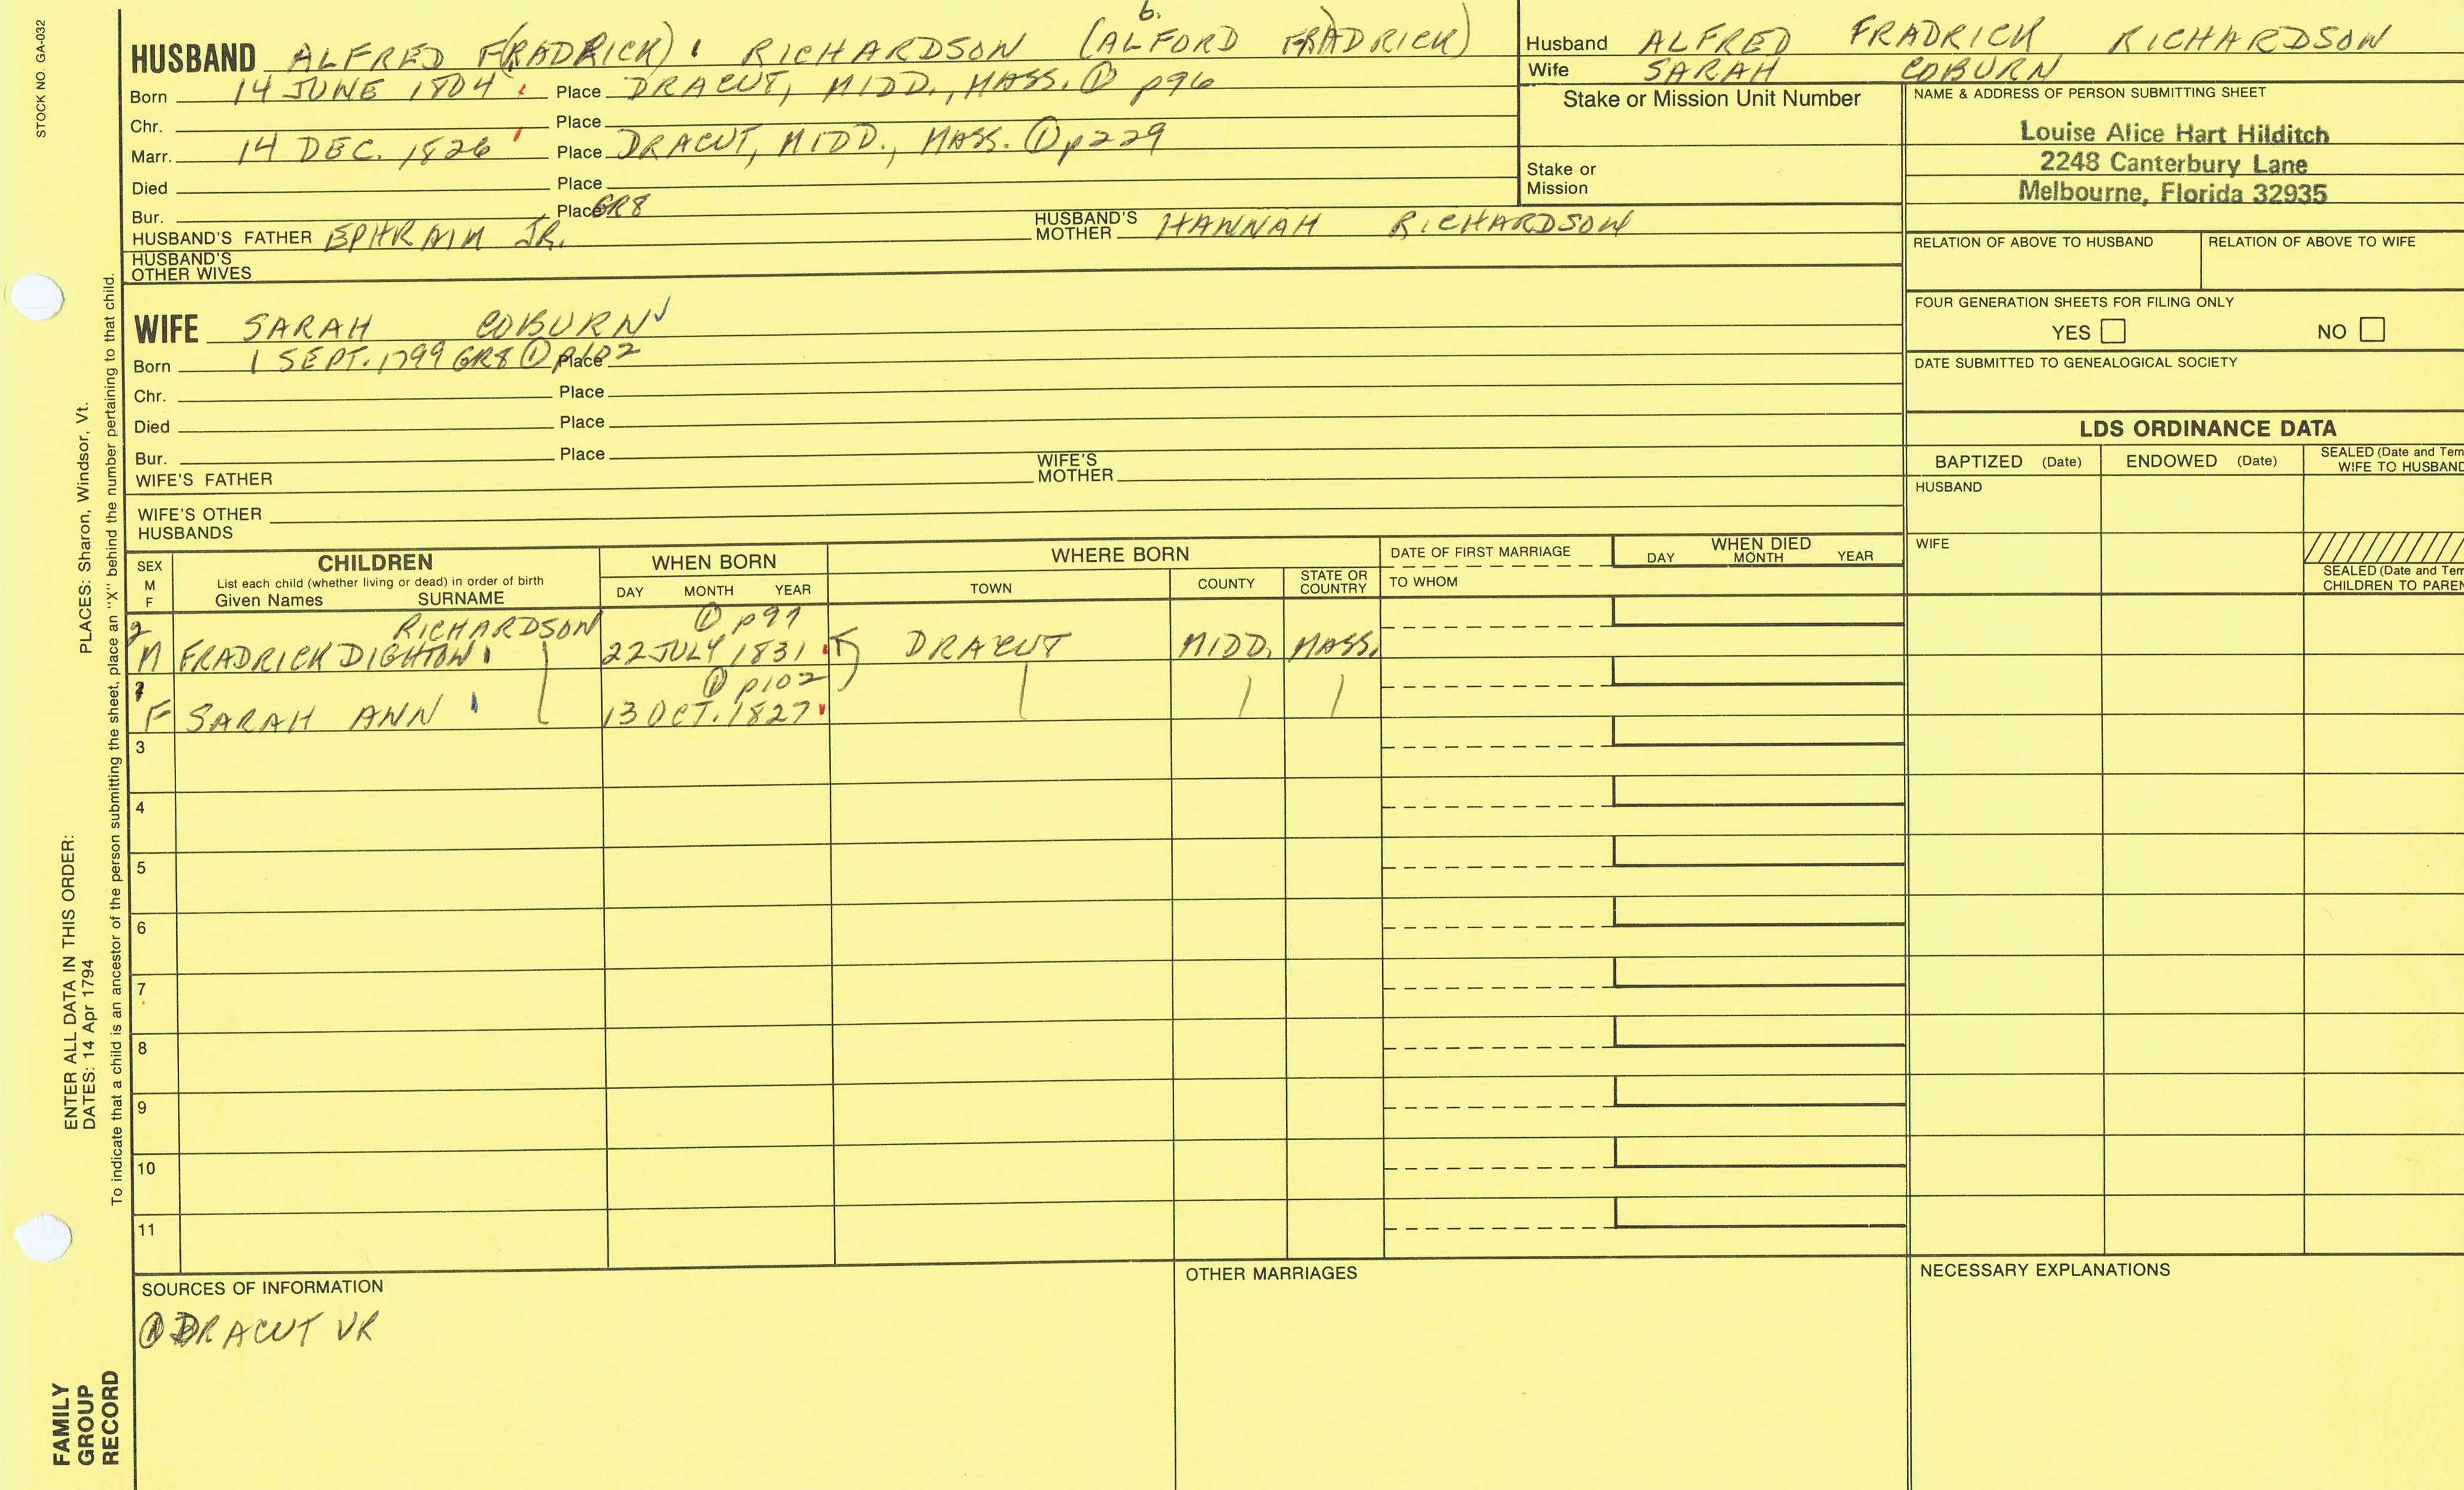 STOCK NO. GA-032
b.
HUSBAND ALFRED F(RADRICK) RICHARDSON (ALFORD FRADRICK)
Born 14 JUNE 1804 Place DRACUT, MIDD., MASS. ① p96
Chr. Place
Marr. 14 DEC. 1826 Place DRACUT, MIDD., MASS. ① p229
Died Place
Bur. Place GR8
HUSBAND'S FATHER EPHRAIM JR. HUSBAND'S MOTHER HANNAH RICHARDSON
HUSBAND'S OTHER WIVES
WIFE SARAH COBURN
Born 1 SEPT. 1799 GR8 ① p102 Place
Chr. Place
Died Place
Bur. Place
WIFE'S FATHER WIFE'S MOTHER
WIFE'S OTHER HUSBANDS
Husband ALFRED FRADRICK RICHARDSON
Wife SARAH COBURN
Stake or Mission Unit Number
Stake or Mission
NAME & ADDRESS OF PERSON SUBMITTING SHEET
Louise Alice Hart Hilditch
2248 Canterbury Lane
Melbourne, Florida 32935
RELATION OF ABOVE TO HUSBAND RELATION OF ABOVE TO WIFE
FOUR GENERATION SHEETS FOR FILING ONLY
YES NO
DATE SUBMITTED TO GENEALOGICAL SOCIETY
LDS ORDINANCE DATA
BAPTIZED (Date) ENDOWED (Date) SEALED (Date and Tem
WIFE TO HUSBAND
HUSBAND
WIFE
SEALED (Date and Tem
CHILDREN TO PAREN
SEX M F CHILDREN WHEN BORN WHERE BORN DATE OF FIRST MARRIAGE WHEN DIED
List each child (whether living or dead) in order of birth
Given Names SURNAME DAY MONTH YEAR TOWN COUNTY STATE OR COUNTRY TO WHOM DAY MONTH YEAR
2 RICHARDSON ① p97
M FRADRICK DIGHTON 22 JULY 1831 DRACUT MIDD. MASS.
① p102
F SARAH ANN 13 OCT. 1827
3
4
5
6
7
8
9
10
11
SOURCES OF INFORMATION
① DRACUT VR
OTHER MARRIAGES
NECESSARY EXPLANATIONS
PLACES: Sharon, Windsor, Vt.
To indicate that a child is an ancestor of the person submitting the sheet, place an "X" behind the number pertaining to that child.
ENTER ALL DATA IN THIS ORDER:
DATES: 14 Apr 1794
FAMILY
GROUP
RECORD